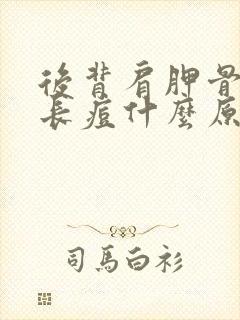 後背肩胛骨
長痘什麼原
司馬白衫